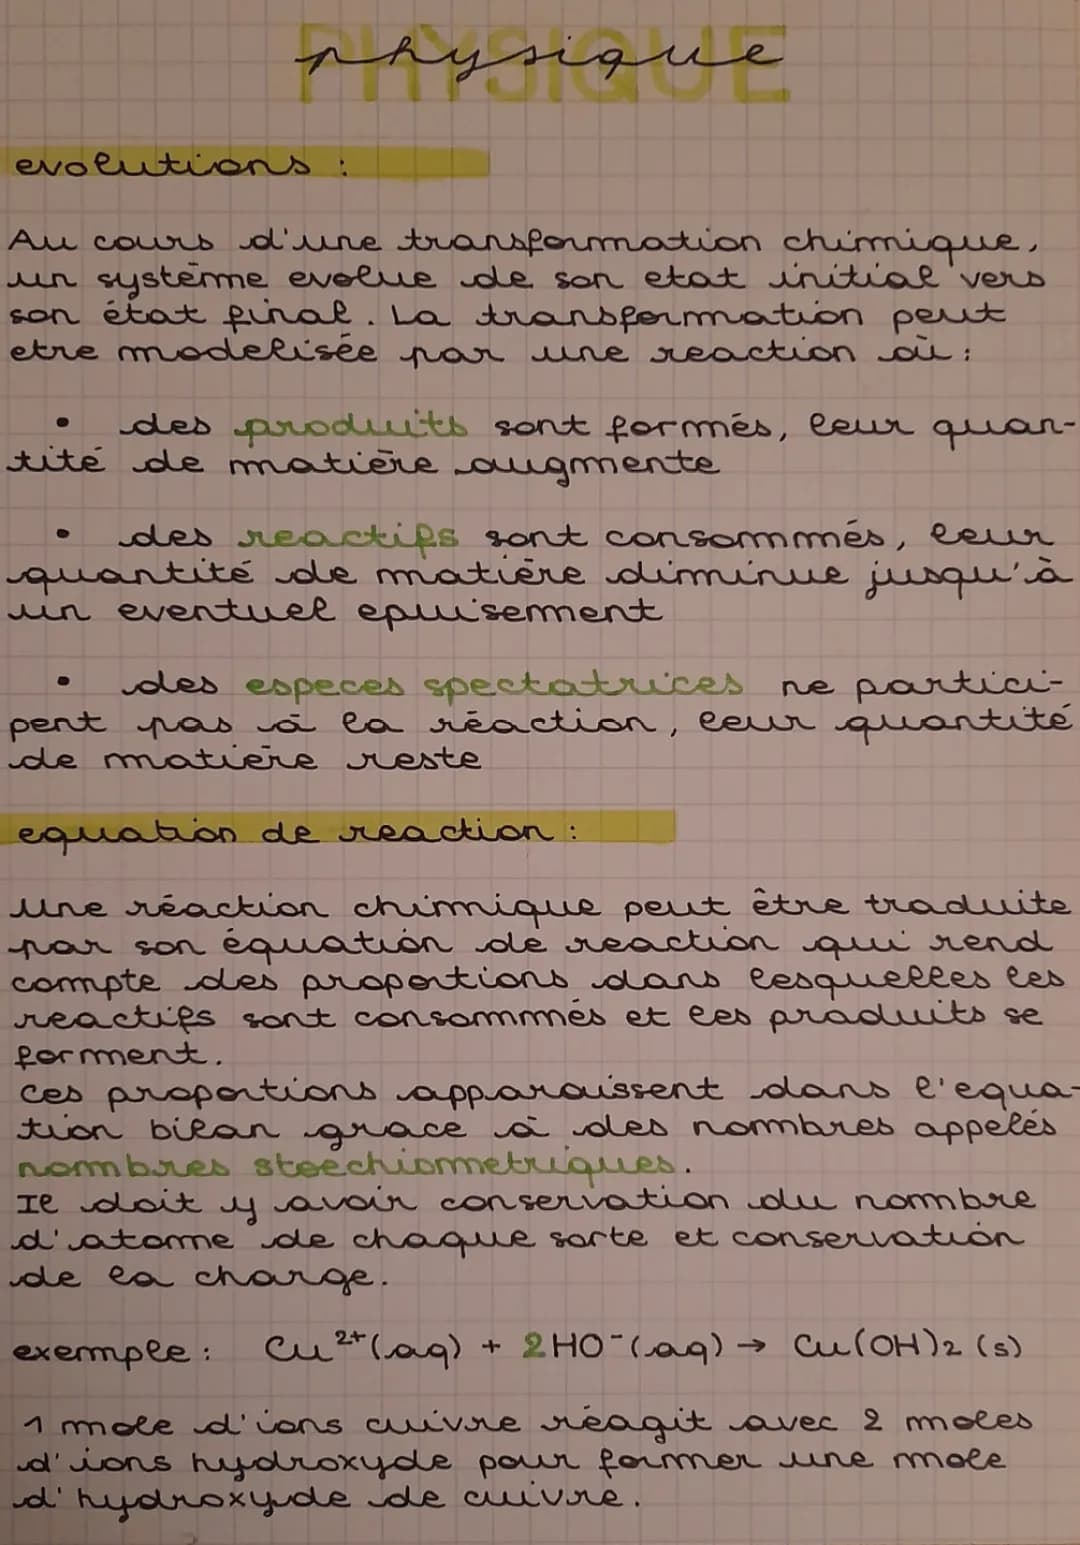 PHYSIQUE
physique
evolutions :
Au cours d'une transformation chimique,
un système evolue de son etat initial vers
son état final. La transformation peut
etre modelisée par une reaction où :
• des produits sont formés, leur quan-
tité de matière augmente
• des reactifs sont consommés, leur
quantité de matière diminue jusqu'à
un eventuel epuisement
• des especes spectatrices ne partici-
pent pas à la réaction, leur quantité
de matière reste
equation de reaction :
Une réaction chimique peut être traduite
par son équation de reaction qui rend
compte des proportions dans lesquelles les
reactifs sont consommés et les produits se
forment.
Ces proportions apparaissent dans l'equa-
tion bilan grace à des nombres appelés
nombres stoechiometriques.
Il doit y avoir conservation du nombre
d'atome de chaque sorte et conservation
de la charge.
exemple : Cu²⁺(aq) + 2HO⁻(aq) → Cu(OH)2 (s)
1 mole d'ions cuivre réagit avec 2 moles
d'ions hydroxyde pour former une mole
d'hydroxyde de cuivre.